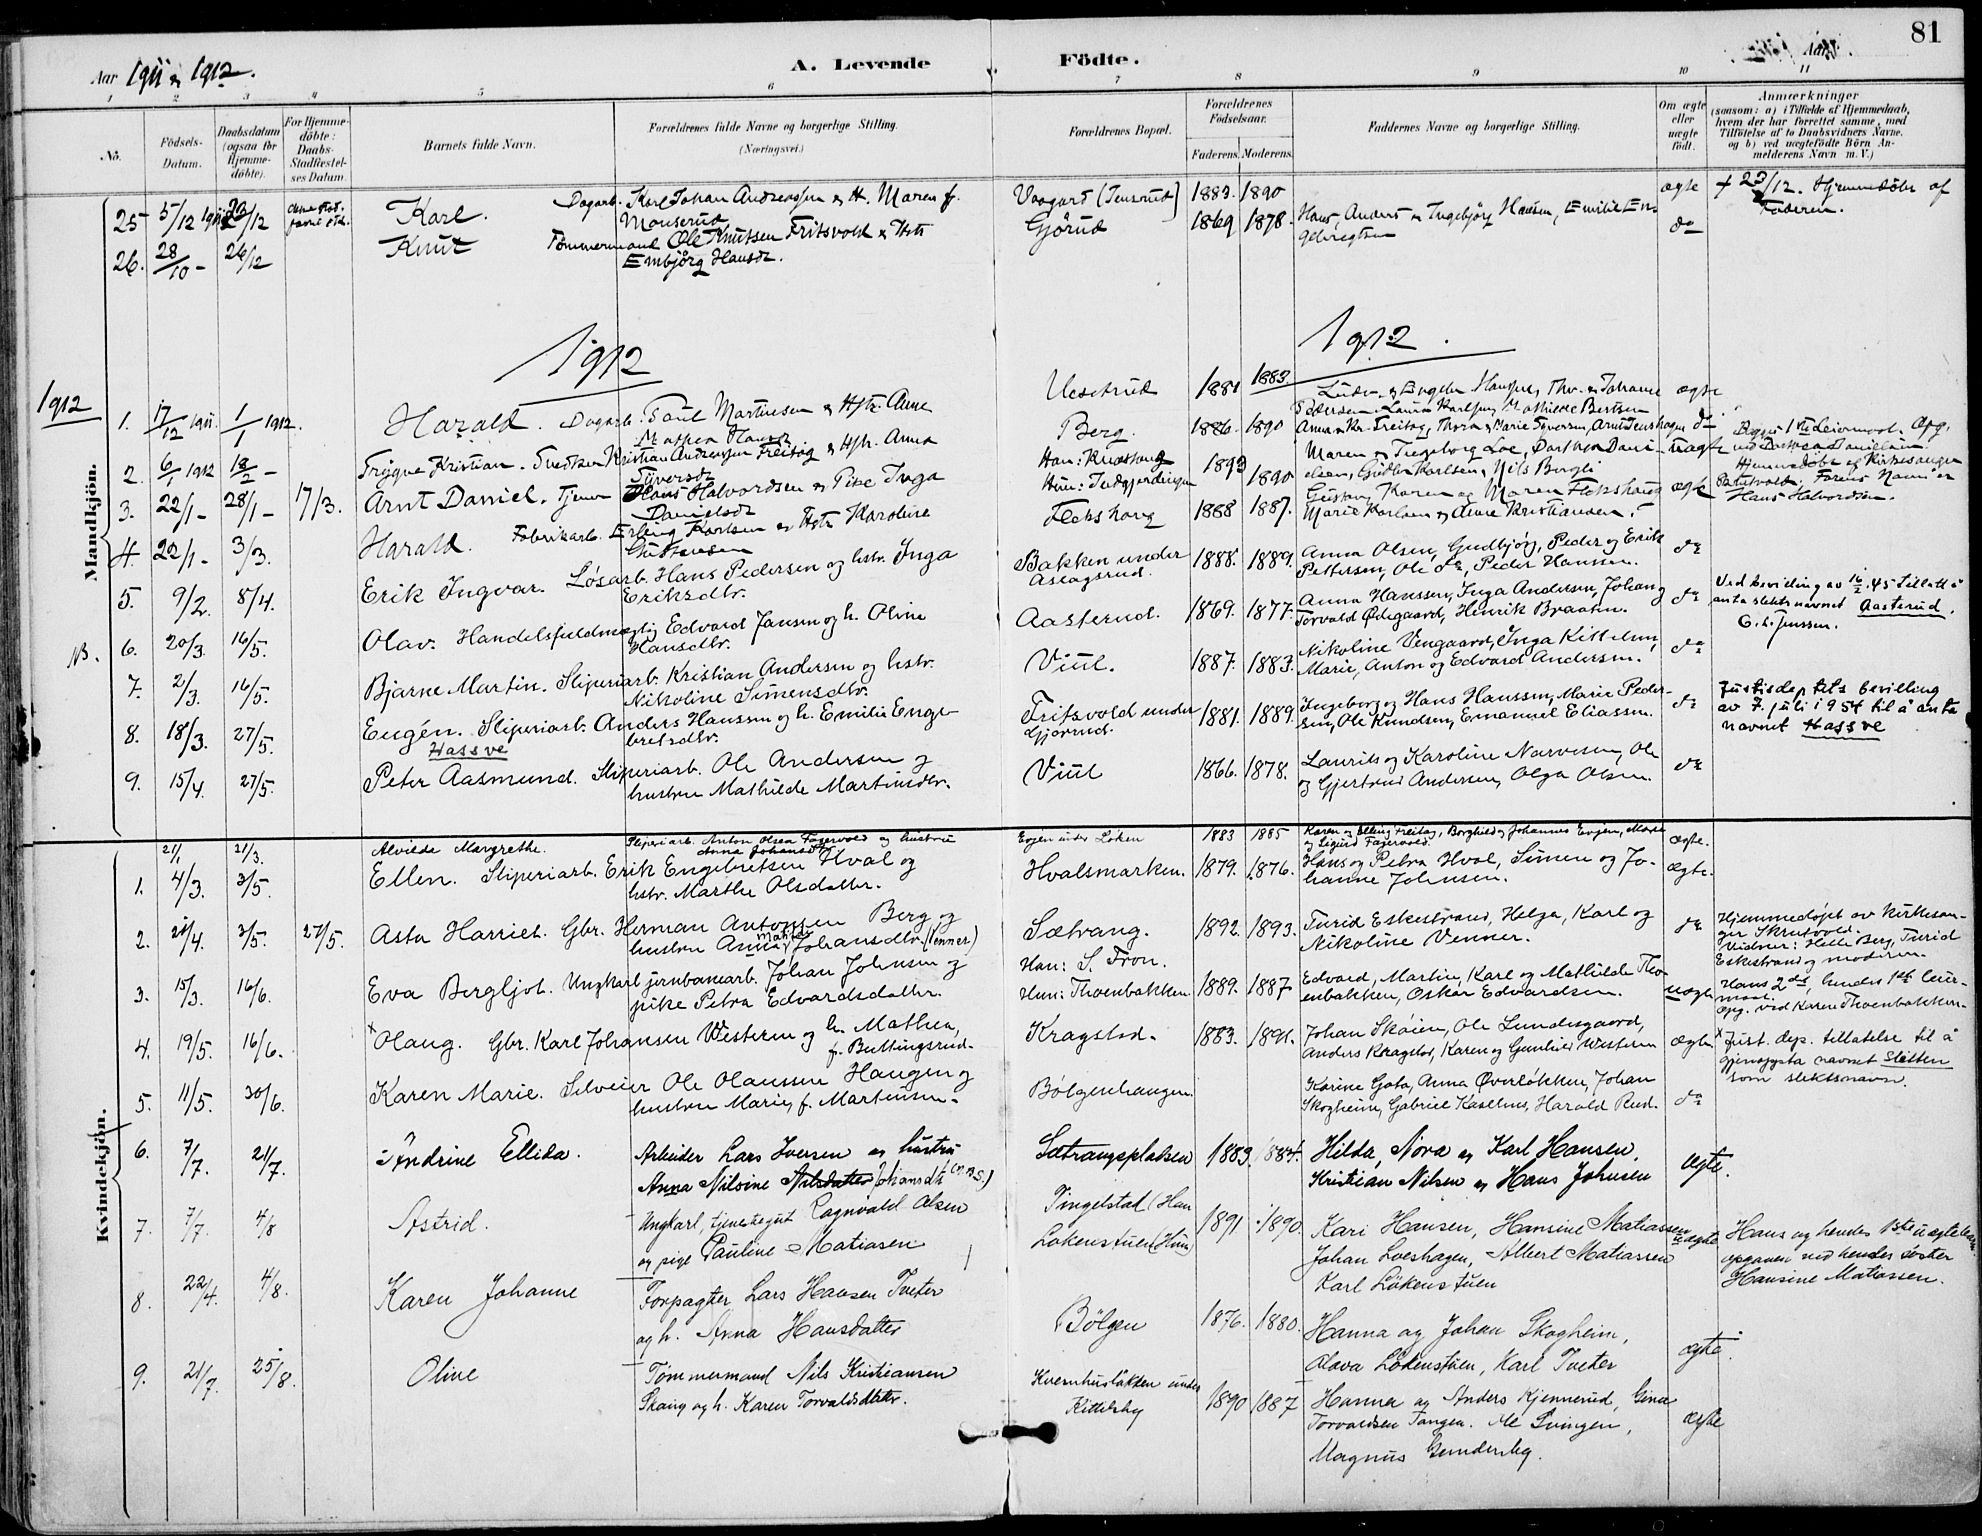 81
Aar 1911 & 1912.
A. Levende Födte.
Aar
1 2 3 4 5 6 7 8 9 10 11
No.
Födsels-Datum.
Daabsdatum (ogsaa for Hjemme-döbte).
For Hjemme-döbte: Daabs-Stadfæstel-ses Datum.
Barnets fulde Navn.
Forældrenes fulde Navne og borgerlige Stilling. (Næringsvei.)
Forældrenes Bopæl.
Forældrenes Födselsaar.
Faderens. Moderens.
Faddernes Navne og borgerlige Stilling.
Om ægte eller uægte födt.
Anmærkninger (saasom: a) i Tilfælde af Hjemmedaab, hvem der har forrettet samme, med Tilföielse af to Daabsvidners Navne. og b) ved uægtefödte Börn An-melderens Navn m. V.)
Mandkjön.
25 5/12 1911 Karl. Dagarb. Karl Johan Andreassen & H. Maren f. 1883. 1890 ægte + 23/12. Hjemmedöbt af
Monserud Faderen.
26. 28/10 - 26/12 Knut Tömmermand Ole Knutsen Fritsvold & Hstr Gjörud 1869 1878. Hans, Anders & Ingebjörg Hansen, Emilie En-
Embjörg Hansdr. gebregtsen do
1912 1912
1912
1. 17/12 1911 1/1 1912. Harald. Dagarb. Paul Martinsen & Hstr. Anne Uesetrud 1881 1883. ægte
Mathea Hansdr
2. 6/1 1912 18/2 - Trygve Kristian. Kristian Andreassen Freitag & Hstr. Anna Berg 1886. 1890 do
Syversdr
3. 22/1 - 28/1 - 17/3. Arnt Daniel. Tjener Hans Halvordsen & Pike Inga 1893 1890 Maren & Ingeborg Loe, uægte
Danielsdr Karlsen, Nils Bergli Hans Halvordsen.
4. 22/1 - 3/3. Harald. Fabrikarb. Erling Karlsen & Hstr Karoline Flekshaug 1888 1887. Gustav, Karen og Maren Flekshaug ægte
Gustavsen Marie Karlsen & Anne Kristiansen.
5. 9/2. 8/4. Erik Ingvar. Løsarb. Hans Pedersen og hstr. Inga Bakken under 1888. 1889. Anna Olsen, Gudbjörg, Peder og Erik do
Eriksdtr. Aslagsrud. Pettersen, Ole do, Peder Hansen.
NB. 6. 20/3. 16/5. Olav. Handelsfuldmægtig Edvard Jansen og h. Oline Aasterud. 1869. 1877. Anna Hanssen, Inga Andersen, Johan og do Ved bevilling av 16/2.45 tillatt å
Hansdtr. Torvald Ødegaard, Henrik Braaten. anta slektsnavnet Aasterud.
7. 2/3. 16/5. Bjarne Martin. Sliperiarb. Kristian Andersen og hstr. Viul. 1887. 1883. Nikoline Vengaard, Inga Kittelsen, do
Nikoline Simensdtr. Marie, Anton og Edvard Andersen.
8. 18/3. 27/5. Eugén. Sliperiarb. Anders Hanssen og h. Emilie Enge- Fritsvold under 1881. 1889. Ingeborg og Hans Hanssen, Marie Peder- do Justisdeptets bevilling
Hassve bretsdtr. Gjörrud. sen, Ole Knudsen, Emanuel Eliassen. av 7. juli 1954 til å anta
navnet Hassve
9. 15/4. 27/5. Peter Aasmund. Sliperiarb. Ole Andersen og Viul 1866. 1878. Laurits og Karoline Narvesen, Ole do
hustru Mathilde Martinsdtr. og Gjertrud Andersen, Olga Olsen.
Kvindekjön.
21/1 21/3. Alvilde Margrethe. Sliperiarb. Anton Olsen Fagervold og hustru Evjen under Löken 1883 1885 Karen og Elling Freitag, Borghild og Johannes Evjen, Marie ægte.
Anna Johansdtr og Sigurd Fagervold.
1. 4/3. 3/5. Ellen. Sliperiarb. Erik Engebretsen Hval og Hvalsmarken. 1879. 1876. Hans og Petra Hval, Simen og Jo- ægte.
hstr. Marthe Olsdatter. hanne Johnsen.
2. 21/4. 3/5. 27/5. Asta Harriet. Gbr. Herman Antonsen Berg og Sætrang. 1892. 1893. Turid Eskestrand, Helga, Karl og do Hjemmedöpt av kirkesan-
hustru Anna Johansdtr. (Venner) Nikoline Venner. ger Skrutvold.
Vidner: Helle Berg, Turid
Eskestrand og moderen.
3. 15/3. 16/6. Eva Bergljot. Ungkarl jernbanearb. Johan Johnsen og Han: S. Fron. 1889. 1887 Edvard, Martin, Karl og Mathilde Tho- uægte Hans 2det, hendes 1ste leier-
pike Petra Edvardsdatter. Hun: Thoenbakken. enbakken, Oskar Edvardsen. maal.
opg. ved Karen Thoenbakken.
4. 19/5. 16/6. x Olaug. Gbr. Karl Johansen Westeren og h. Mathea, Kragstad. 1883. 1891. Johan Skøien, Ole Lundesgaard, ægte x Just. dep. tillatelse til å
f. Buttingsrud. Anders Kragstad, Karen og Gunhild Westeren gjenoppta navnet Sletten
som slektsnavn.
5. 11/5. 30/6. Karen Marie. Selveier Ole Olaussen Haugen og Bölgenhaugen. Karine Gata, Anna Överløkken, Johan do
hustru Marie, f. Martinsen. Skogheim, Gabriel Kaselhus, Harald Rud.
6. 7/7. 21/7. Andrine Ellida. Arbeider Lars Iversen og hustru Sætrangspladsen 1883. 1884. Hilda, Nora og Karl Hansen, ægte.
Anna Nilsine Nilsdatter Johansdtr Kristian Nilsen og Hans Johnsen
7. 7/7. 4/8 Astrid. Ungkarl, tjenestegut Ragnvald Olsen Tingelstad (Han 1891. 1890. Kari Hansen, Hansine Matiassen uægte Hans og hendes 1ste uægte barn.
og pige Pauline Matiasen Løkenstuen (Hun) Johan Loeshagen, Albert Matiassen opgaven ved hendes söster
Karl Lökenstuen Hansine Matiassen.
8. 22/4. 4/8. Karen Johanne Forpagter Lars Hansen Tveter Bölgen 1876. 1880. Hanna og Johan Skogheim, ægte.
og h. Anna Hansdatter Olava Lökenstuen, Karl Tveter
9. 21/7. 25/8. Oline Tömmermand Nils Kristiansen Kvernhusløkken under 1890 1887 Hanna og Anders Kjennerud, Gina ægte
Skaing og h. Karen Torvaldsdatter. Kittelsby Torvaldsen Tangen. Svingen,
Magnus